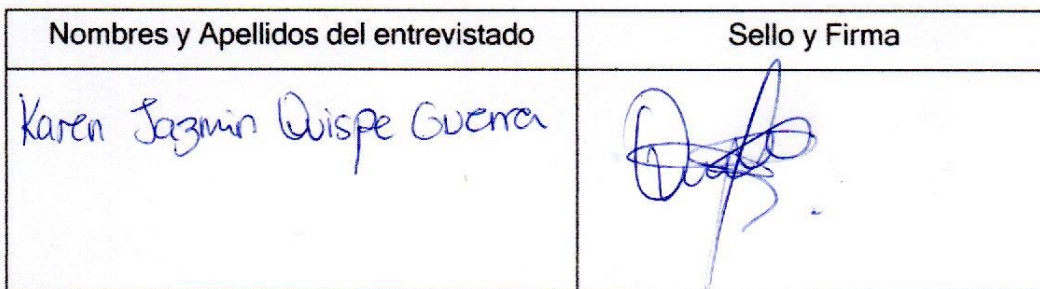 Nombres y Apellidos del entrevistado
Sello y Firma
Karen Jazmin Quispe Guerra